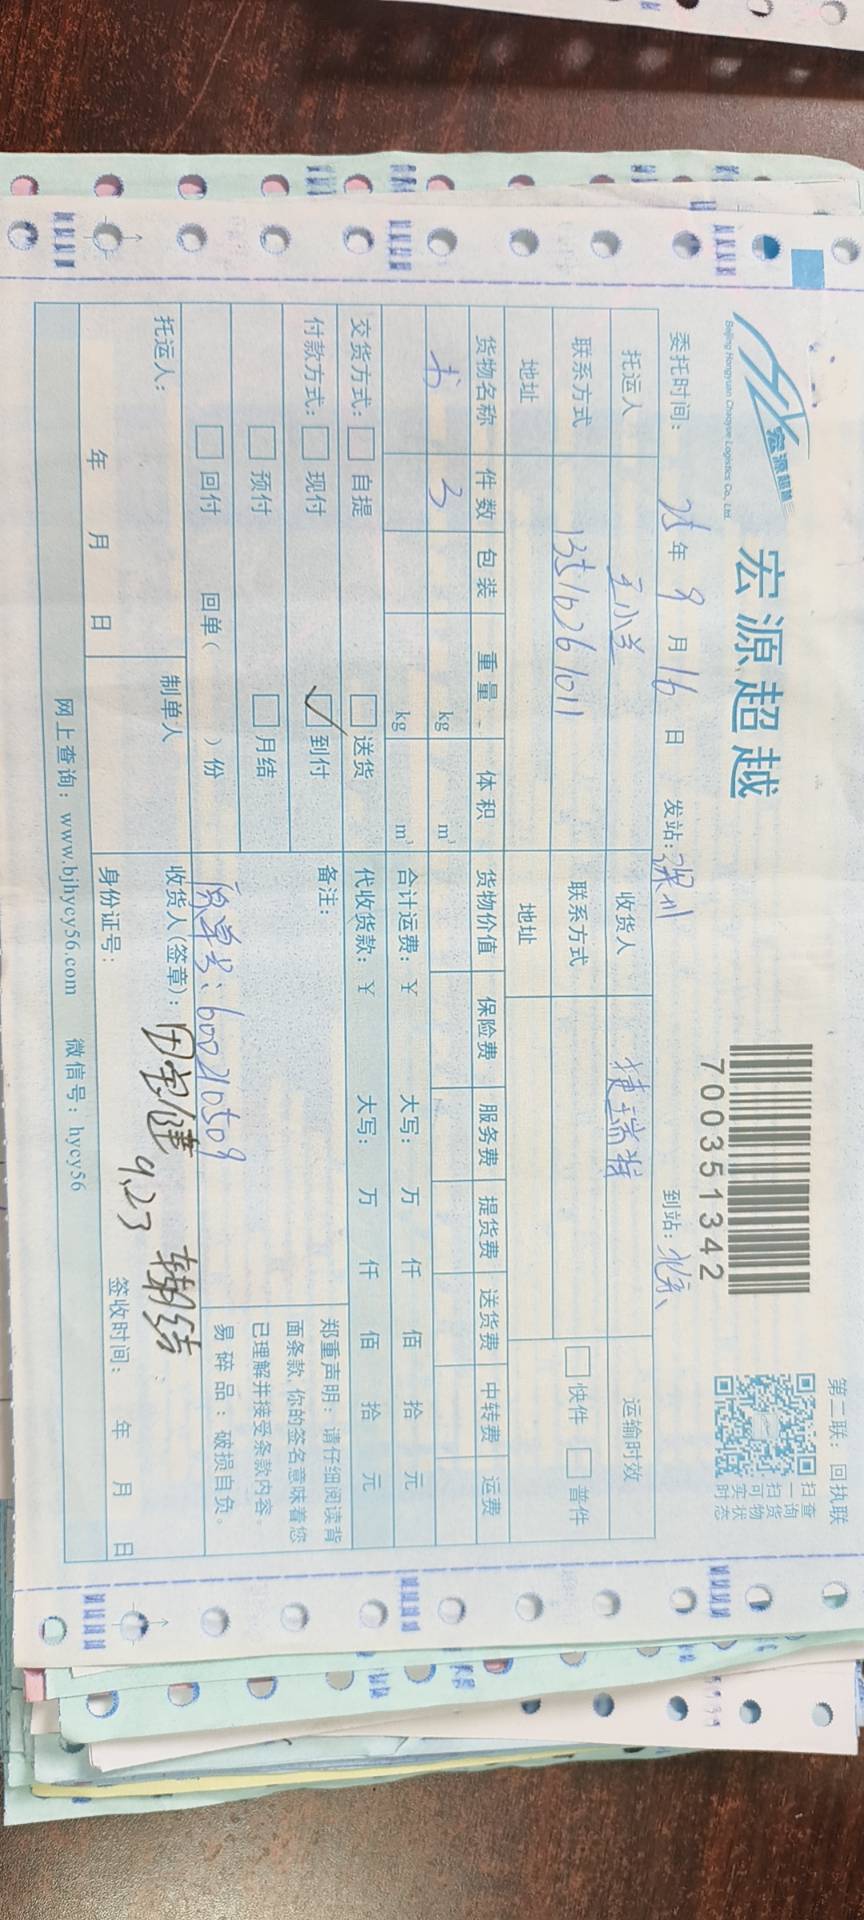 第二联：回执联
宏源超越
Beijing Hongyuan Chaoyue Logistics Co., Ltd.
宏源超越
700351342
扫一扫可实时
查询货物状态
委托时间： 25 年 9 月 16 日 发站：深圳 到站：北京
托运人 王小兰 收货人 捷瑞特 运输时效
联系方式 13510261011 联系方式 快件 普件
地址 地址
货物名称 件数 包装 重量 体积 货物价值 保险费 服务费 提货费 送货费 中转费 运费
书 3 kg m³
kg m³ 合计运费：￥ 大写： 万 仟 佰 拾 元
交货方式： 自提 送货 代收货款：￥ 大写： 万 仟 佰 拾 元
付款方式： 现付 ✓ 到付 备注：
预付 月结
回付 回单（ ）份
原单号：600210509
郑重声明：请仔细阅读背
面条款，你的签名意味着您
已理解并接受条款内容。
易碎品：破损自负。
托运人： 制单人 收货人(签章)：
年 月 日 身份证号： 9.23 签收时间： 年 月 日
网上查询：www.bjhycy56.com 微信号：hycy56